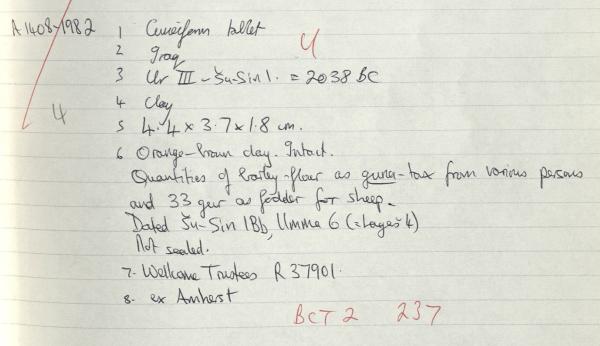 A 1408-1982 1 Cuneiform tablet
U
2 Iraq
3 Ur III - Šu-Sin 1. = 2038 BC
4
4 Clay
5 4.4 x 3.7 x 1.8 cm.
6 Orange-brown clay. Intact.
Quantities of barley-flour as guna-tax from various persons
and 33 gur as fodder for sheep.
Dated Šu-Sin 1Bb, Umma 6 (=Lagaš 4)
Not sealed.
7. Wellcome Trustees R 37901.
8. ex Amherst
BCT 2 237